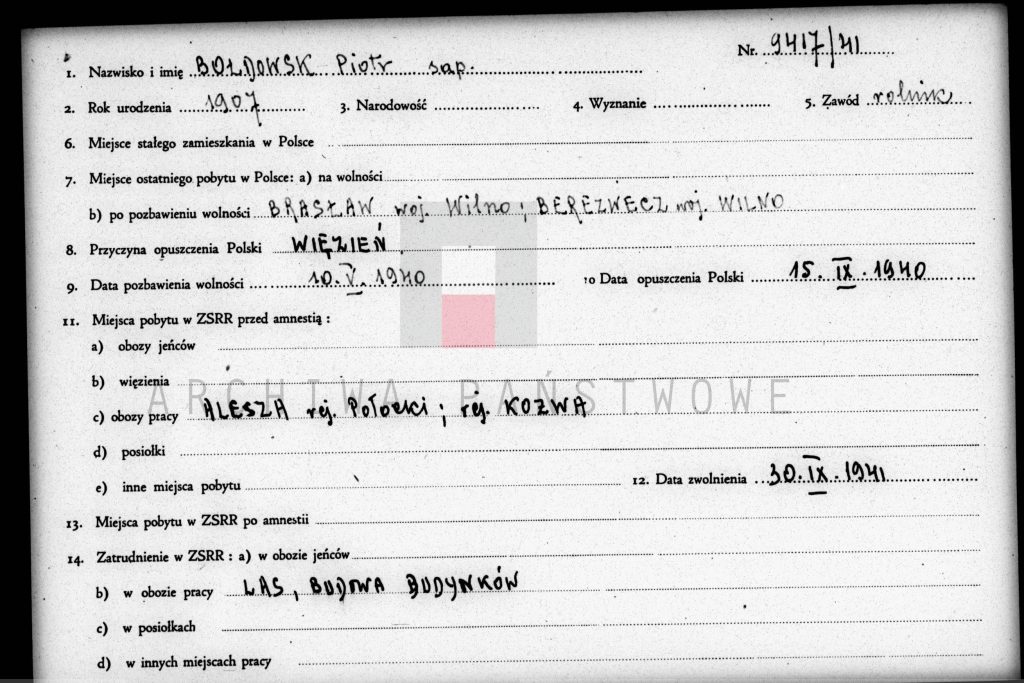 Nr. 9417/41
1. Nazwisko i imię BOŁDOWSK Piotr sap.
2. Rok urodzenia 1907 3. Narodowość 4. Wyznanie 5. Zawód rolnik
6. Miejsce stałego zamieszkania w Polsce
7. Miejsce ostatniego pobytu w Polsce: a) na wolności
b) po pozbawieniu wolności BRASŁAW woj. Wilno; BEREZWECZ woj. WILNO
8. Przyczyna opuszczenia Polski WIĘZIEŃ.
9. Data pozbawienia wolności 10.V.1940 10 Data opuszczenia Polski 15.IX.1940
11. Miejsca pobytu w ZSRR przed amnestią :
a) obozy jeńców
b) więzienia
ARCHIWA PAŃSTWOWE
c) obozy pracy ALESZA rej. Połocki; rej. KOZWA
d) posiołki
e) inne miejsca pobytu 12. Data zwolnienia 30.IX.1941
13. Miejsca pobytu w ZSRR po amnestii
14. Zatrudnienie w ZSRR : a) w obozie jeńców
b) w obozie pracy LAS, BUDOWA BUDYNKÓW
c) w posiołkach
d) w innych miejscach pracy